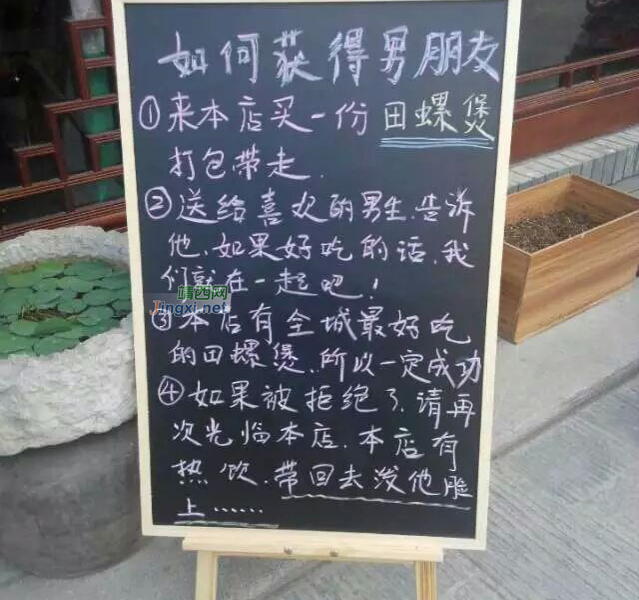 如何获得男朋友
①来本店买一份田螺煲
打包带走.
②送给喜欢的男生.告诉
他.如果好吃的话.我
们就在一起吧!
靖西网
Jingxi.net
③本店有全城最好吃
的田螺煲.所以一定成功
④如果被拒绝了.请再
次光临本店.本店有
热饮.带回去泼他脸
上……